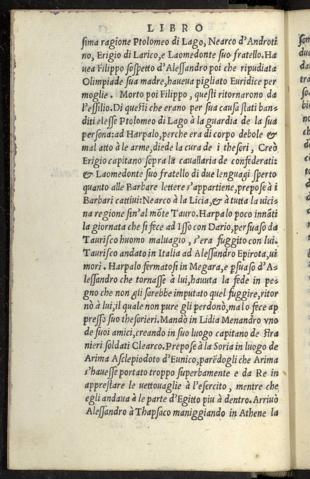 LIBRO
sima ragione Ptolomeo di Lago, Nearco d'Androti
no, Erigio di Larico, e Laomedonte suo fratello. Ha
uea Filippo sospetto d'Alessandro poi che ripudiata
Olimpiade sua madre, haueua pigliato Euridice per
moglie. Morto poi Filippo, questi ritornarono da
l'essilio. Di questi che erano per sua causa stati ban
diti elesse Ptolomeo di Lago à la guardia de la sua
persona: ad Harpalo, perche era di corpo debole &
mal atto à le arme, diede la cura de i thesori, Creò
Erigio capitano sopra la cauallaria de confederati:
& Laomedonte suo fratello di due lenguagi sperto
quanto alle Barbare lettere s'appartiene, prepose à i
Barbari cattiui: Nearco à la Licia, & à tutta la uici
na regione sin'al mōte Tauro. Harpalo poco innāti
la giornata che si fece ad Isso con Dario, persuaso da
Taurisco huomo maluagio, s'era fuggito con lui.
Taurisco andato in Italia ad Alessandro Epirota, ui
morì. Harpalo fermatosi in Megara, e psuaso d'A-
lessandro che tornasse à lui, hauuta la fede in pe
gno che non gli sarebbe imputato quel fuggire, ritor
nò à lui, il quale non pure gli perdonò, ma lo fece ap
presso suo thesorieri. Mandò in Lidia Menandro vno
de suoi amici, creando in suo luogo capitano de stra
nieri soldati Clearco. Prepose à la Soria in luogo de
Arima Asclepiodoto d'Eunico, parēdogli che Arima
s'hauesse portato troppo superbamente e da Re in
apprestare le uettouaglie à l'esercito, mentre che
egli andaua è le parte d'Egitto piu à dentro. Arriuò
Alessandro à Thapsaco maniggiando in Athene la